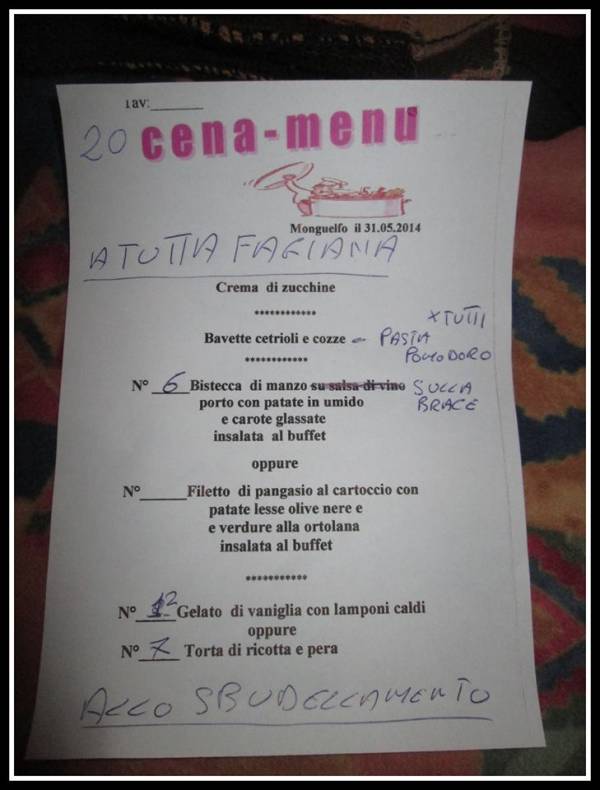 Tav:______
20 cena-menu
Monguelfo il 31.05.2014
A TUTTA FAGIANA
Crema di zucchine
************
Bavette cetrioli e cozze - PASTA POMODORO X TUTTI
************
N° 6 Bistecca di manzo su salsa di vino SULLA BRACE
porto con patate in umido
e carote glassate
insalata al buffet
oppure
N°______Filetto di pangasio al cartoccio con
patate lesse olive nere e
e verdure alla ortolana
insalata al buffet
***********
N° 12 Gelato di vaniglia con lamponi caldi
oppure
N° 7 Torta di ricotta e pera
ALLO SBUDELLAMENTO